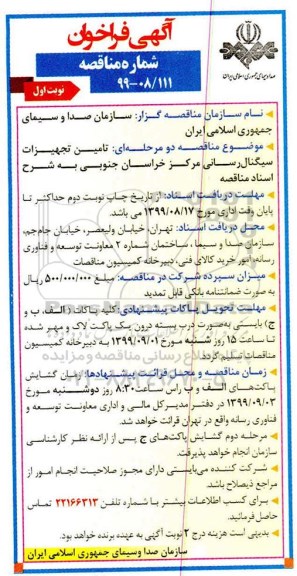 آگهی فراخوان
شماره مناقصه
۹۹-۰۸/۱۱۱
نوبت اول
صدا و سیمای جمهوری اسلامی ایران
نام سازمان مناقصه گزار: سازمان صدا و سیمای
جمهوری اسلامی ایران
موضوع مناقصه دو مرحله‌ای: تامین تجهیزات
سیگنال‌رسانی مرکز خراسان جنوبی به شرح
اسناد مناقصه
مهلت دریافت اسناد: از تاریخ چاپ نوبت دوم حداکثر تا
پایان وقت اداری مورخ ۱۳۹۹/۰۸/۱۷ می باشد.
محل دریافت اسناد: تهران، خیابان ولیعصر، خیابان جام‌جم،
سازمان صدا و سیما، ساختمان شماره ۲ معاونت توسعه و فناوری
رسانه امور خرید کالای فنی، دبیرخانه کمیسیون مناقصات
میزان سپرده شرکت در مناقصه: مبلغ ۵۰۰/۰۰۰/۰۰۰ ریال
به صورت ضمانتنامه بانکی قابل تمدید
مهلت تحویل پاکات پیشنهادی: کلیه پاکات (الف، ب و
ج) بایستی به‌صورت درب بسته درون یک پاکت لاک و مهر شده
تا ساعت ۱۵ روز شنبه مورخ ۱۳۹۹/۰۹/۰۱ به دبیرخانه کمیسیون
مناقصات تسلیم گردد.
زمان مناقصه و محل قرائت پیشنهادها: زمان گشایش
پاکت‌های الف و ب راس ساعت ۸:۳۰ روز دوشنبه مورخ
۱۳۹۹/۰۹/۰۳ در دفتر مدیرکل مالی و اداری معاونت توسعه و
فناوری رسانه واقع در تهران قرائت خواهد شد.
مرحله دوم گشایش پاکت‌های ج پس از ارائه نظر کارشناسی
سازمان انجام خواهد پذیرفت.
شرکت کننده می‌بایستی دارای مجوز صلاحیت انجام امور از
مراجع ذیصلاح باشد.
برای کسب اطلاعات بیشتر با شماره تلفن ۲۲۱۶۶۳۱۳ تماس
حاصل فرمائید.
بدیهی است هزینه درج ۲ نوبت آگهی به عهده برنده خواهد بود.
سازمان صدا وسیمای جمهوری اسلامی ایران